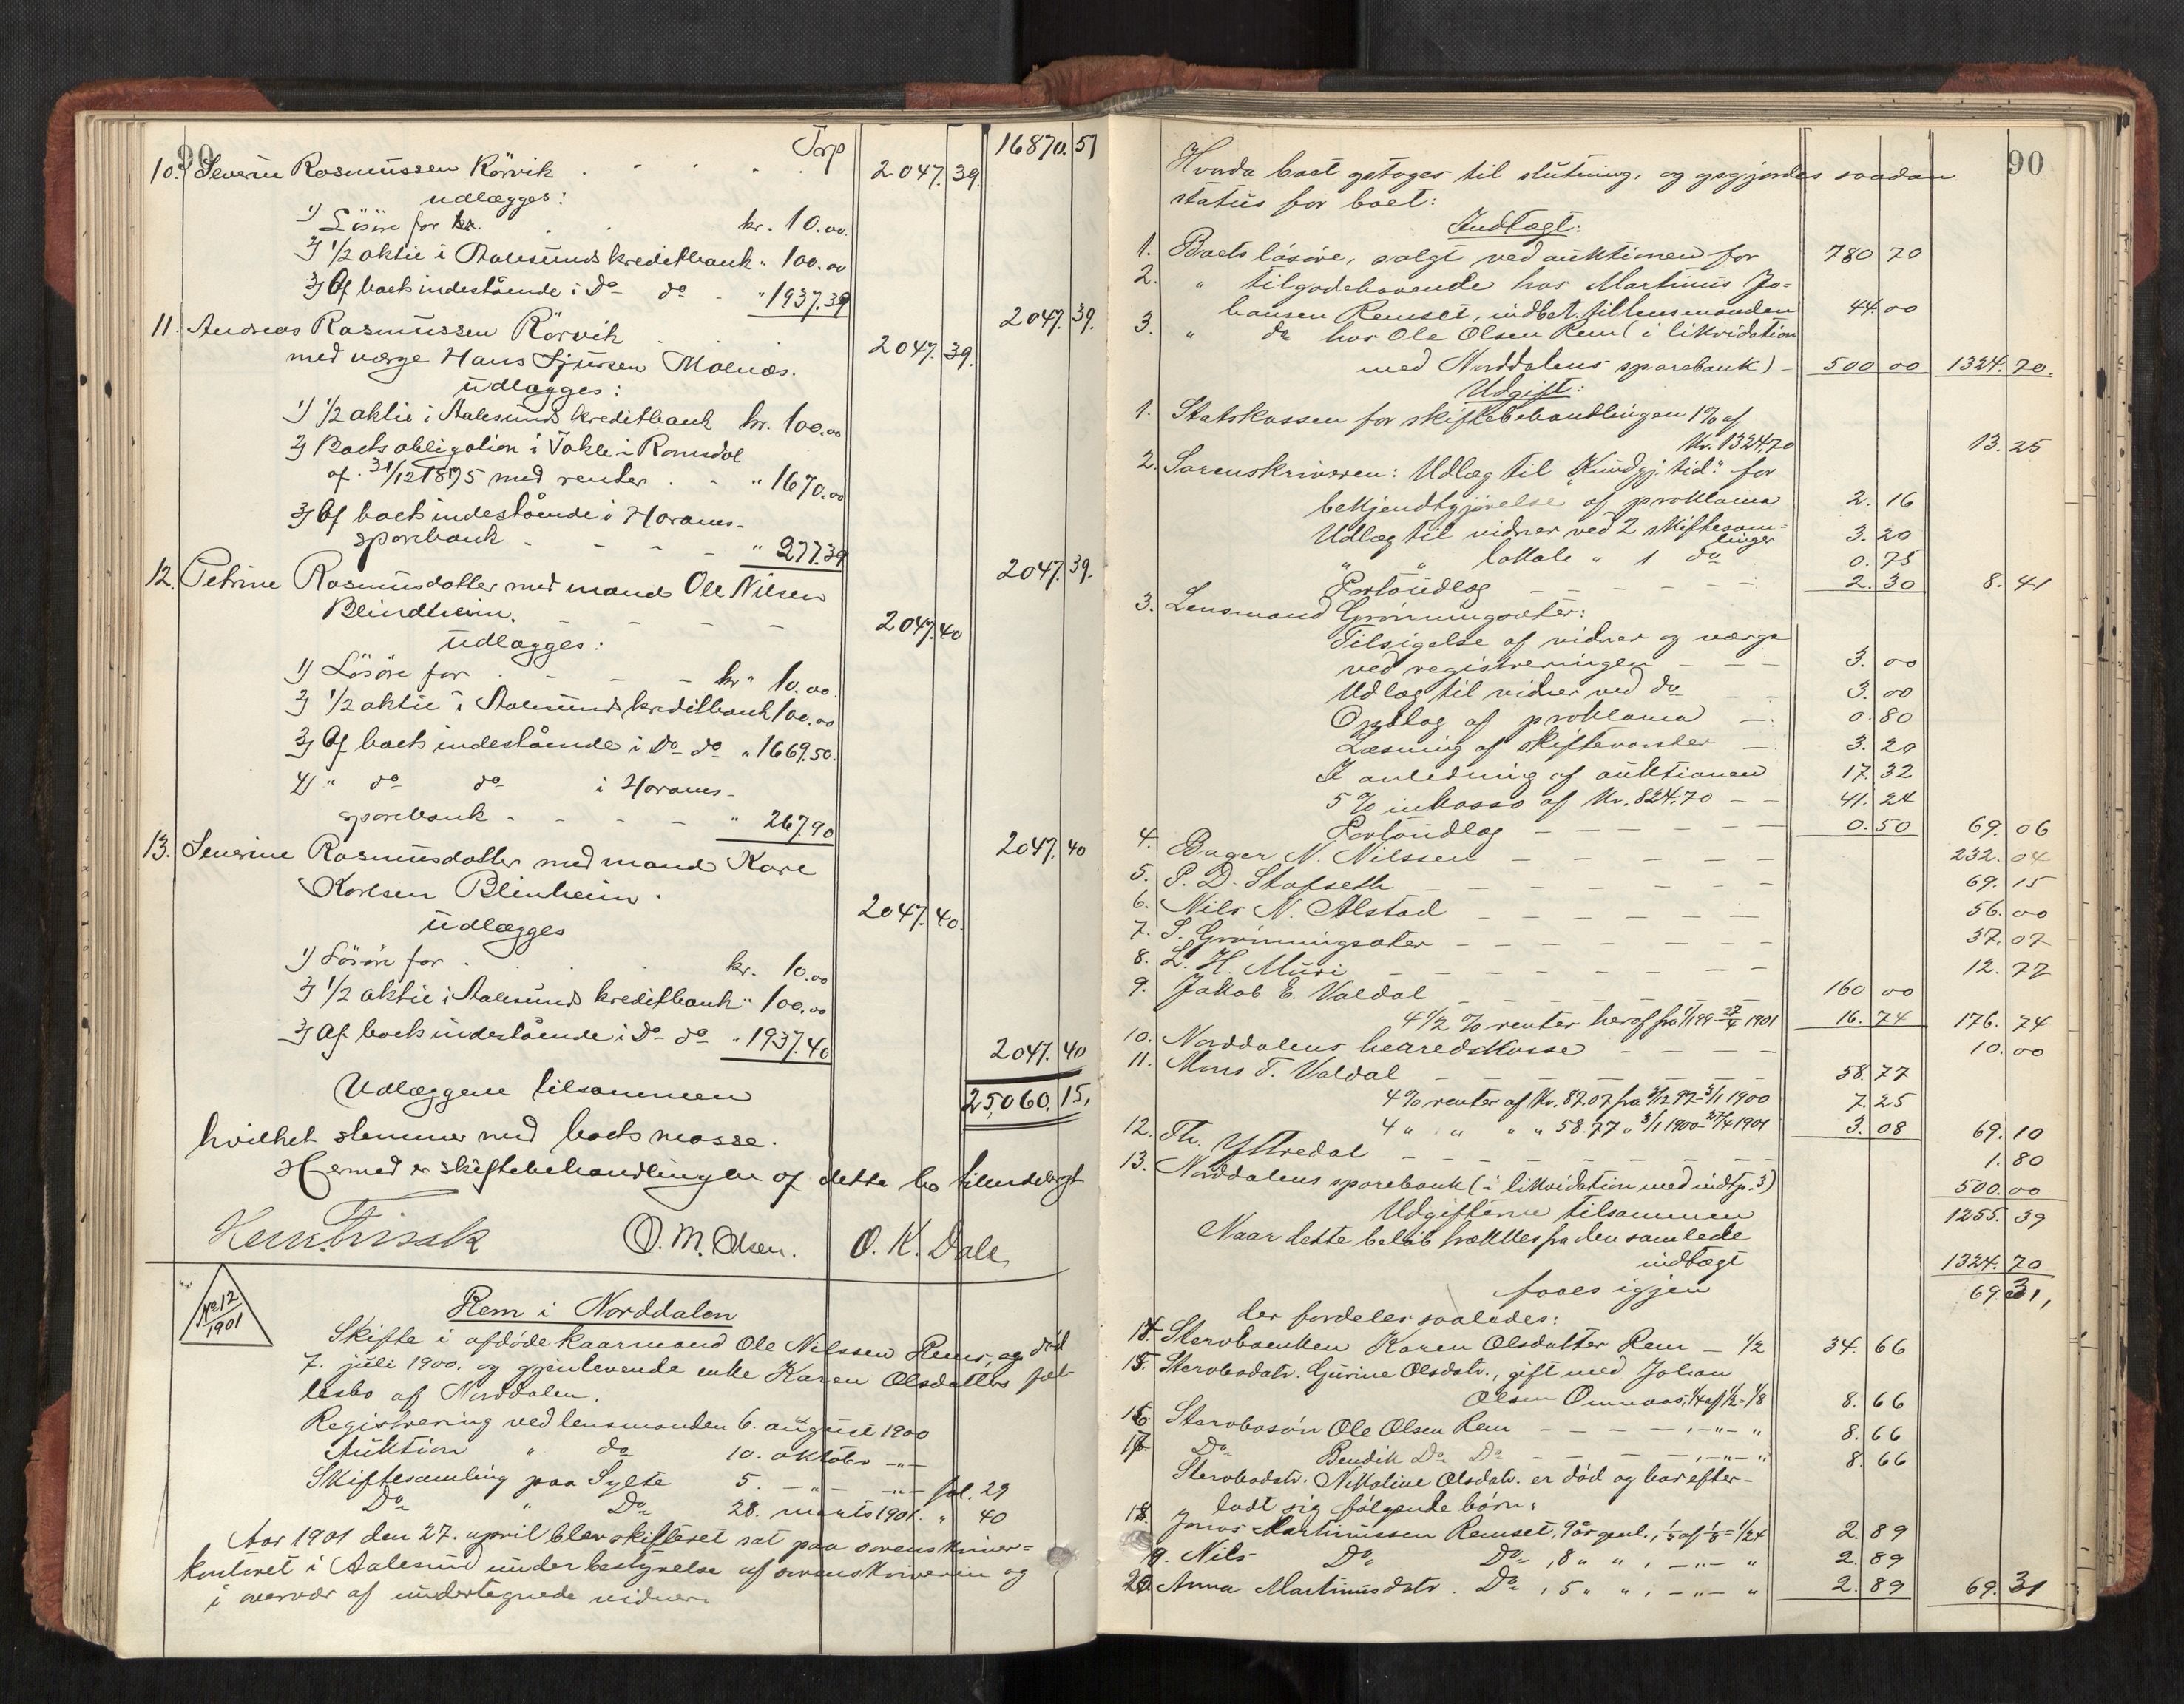 Trp 16870. 51
10. Severin Rasmussen Rörvik . . . . 2047. 39.
udlægges:
1) Lösöre for kr. . . kr. 10.00.
2) 1/2 aktie i Aalesunds kreditbank " 100.00
3) Af boets indestående i Do do - " 1937.39 2047. 39.
11. Andreas Rasmussen Rörvik . . . 2047. 39.
med værge Hans Sjursen Molnæs.
udlægges:
1) 1/2 aktie i Aalesunds kreditbank kr. 100.00
2) Boets obligation i Vakle i Romsdal
af 31/12 1895 med renter . - " 1670.00
3) Af boets indestående i Harams-
sparebank - - - - " 277.39 2047. 39.
12. Petrine Rasmusdatter med mand Ole Nilsen
Blindheim. - - - - 2047. 40
udlægges:
1) Lösöre for . - - - kr " 10.00.
2) 1/2 aktie i Aalesunds kreditbank 100.00
3) Af boets indestående i Do do " 1669.50.
4) " do do i Harams-
sparebank - - - - " 267.90 2047. 40
13. Severine Rasmusdatter med mand Kare
Karlsen Blinheim . 2047. 40.
udlægges
1) Lösöre for . . . kr. 10.00
2) 1/2 aktie i Aalesunds kreditbank " 100.00
3) Af boets indestående i Do do " 1937.40 2047. 40
Udlæggene tilsammen 25,060. 15,
hvilket stemmer med boets masse.
Hermed er skiftebehandlingen af dette bo tilendebragt
O. M. Olsen. O. K. Dale
No 12
1901
Rem i Norddalen
Skifte i afdøde kaarmand Ole Nilssen Rems, og død
7. juli 1900, og gjenlevende enke Karen Olsdatters fæl-
lesbo af Norddalen.
Registrering ved lensmanden 6. august 1900
Auktion " do 10. oktober -"-
Skiftesamling paa Sylte 5. -"- -"- fol. 29
Do " Do 28. marts 1901. " 40
Aar 1901 den 27. april blev skifteret sat paa sorenskriver-
kontoret i Aalesund under bestyrelse af sorenskriveren og
i overvær af undertegnede vidner.
90
Hvorda boet optoges til slutning, og opgjordes saadan
status for boet:
Indtægt:
1. Boets løsøre, solgt ved auktionen for 780 70
2. " tilgodehavende hos Martinus Jo-
hansen Remset, indbet. til lensmanden 44. 00
3. " do hos Ole Olsen Rem (i likvidation
med Norddalens sparebank) - 500 00 1324. 70.
Udgift:
1. Statskassen for skiftebehandlingen 1% af
Kr. 1324,70 13. 25
2. Sorenskriveren: Udlæg til "Kundgj. tid." for
bekjendtgjørelse af proklama 2. 16
Udlæg til vidner ved 2 skiftesam-
linger 3. 20
" " lokale " 1 do 0. 75
Portoudlæg - - - - - 2. 30 8. 41
3. Lensmand Grønningsæter:
Tilsigelse af vidner og værge
ved registreringen - - - 3. 00
Udlæg til vidner ved do - - 3. 00
Opslag af proklama - - 0. 80
Læsning af skiftevarsler - 3. 20
I anledning af auktionen 17. 32
5% inkasso af Kr. 824.70 - - 41. 24
Portoudlæg - - - - - 0. 50 69. 06
4. Bager N. Nilssen - - - - - 232. 04
5. P. D. Stafseth - - - - - - 69. 15
6. Nils N. Alstad - - - - - 56. 00
7. S. Grønningsæter - - - - - 37. 07
8. L. H. Muri - - - - - - 12. 77
9. Jakob E. Valdal - - - - - 160 00
4 1/2 % renter heraf fra 1/1 99 - 27/4 1901 16. 74 176. 74
10. Norddalens heredskasse - - - - 10. 00
11. Mons T. Valdal - - - - - 58. 77
4% renter af Kr. 87.07 fra 3/12 97 - 3/1 1900 7. 25
4 " " " " 58.77 " 3/1 1900 - 27/4 1901 3. 08 69. 10
12. Th. Yttredal - - - - - - 1. 80
13. Norddalens sparebank (i likvidation med indtp. 3) 500. 00
Udgifterne tilsammen 1255. 39
Naar dette beløb trækkes fra den samlede
indtægt 1324. 70
faaes igjen 69. 31,
der fordeles saaledes:
14. Stervboenken Karen Olsdatter Rem - 1/2 34. 66
15. Stervbodatr. Gurine Olsdatr., gift med Johan
Olsen Omenaas, 1/4 af 1/2 = 1/8 8. 66
16. Stervbosøn Ole Olsen Rem - - - - , -"- " 8. 66
17. Do Bendik Do Do - - - - , -"- " 8. 66
Stervbodatr. Nikoline Olsdatr. er død og har efter-
ladt sig følgende børn:
18. Jonas Martinussen Remset, 9 år gml., 1/3 af 1/8 = 1/24 2. 89
19. Nils Do Do , 8 " " , -"- " 2. 89
20. Anna Martinusdatr. Do , 5 " " , -"- " 2. 89 69. 31